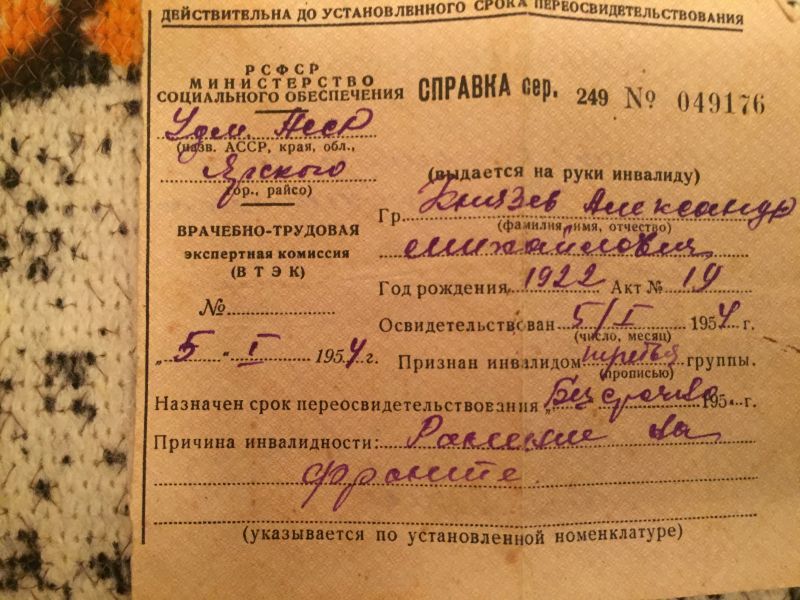 ДЕЙСТВИТЕЛЬНА ДО УСТАНОВЛЕННОГО СРОКА ПЕРЕОСВИДЕТЕЛЬСТВОВАНИЯ
РСФСР
МИНИСТЕРСТВО
СОЦИАЛЬНОГО ОБЕСПЕЧЕНИЯ
Удм.
(назв. АССР, края, обл.,
Ярского
гор., райсо)
ВРАЧЕБНО-ТРУДОВАЯ
экспертная комиссия
(ВТЭК)
№
„5" I 1954 г.
СПРАВКА сер. 249 № 049176
(выдается на руки инвалиду)
Гр. Князев Александр
(фамилия, имя, отчество)
Михайлович
Год рождения 1922 Акт № 19
Освидетельствован 5/I 1954 г.
(число, месяц)
Признан инвалидом третья группы.
(прописью)
Назначен срок переосвидетельствования „Бессрочно 195 г.
Причина инвалидности: Ранение на
фронте.
(указывается по установленной номенклатуре)